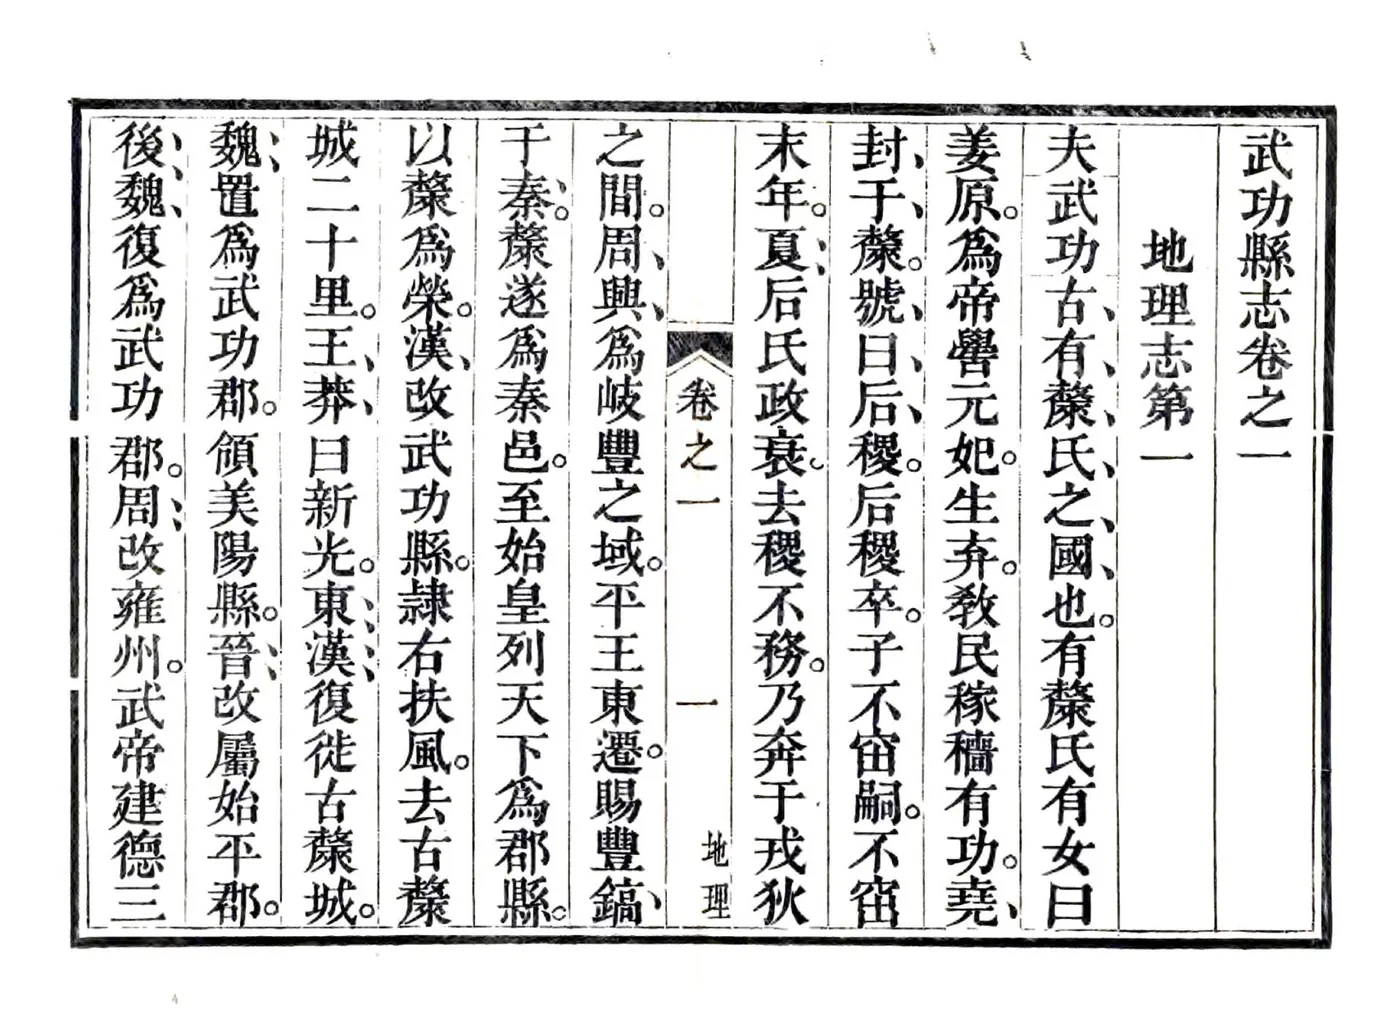 武功縣志卷之一
地理志第一
夫武功古有斄氏之國也。有斄氏有女曰
姜原。爲帝嚳元妃。生弃。敎民稼穡有功。堯、
封、于、斄。號、曰、后、稷。后稷卒。子不窋嗣。不窋
末年。夏、后氏政衰。去稷不務。乃奔于戎狄
卷之一
一
地理
之間。周、興、爲岐豐之域。平王東遷。賜豐鎬、
于秦、。斄遂爲秦邑。至始皇列天下爲郡縣。
以斄爲榮。漢、改武功縣。隷右扶風。去古斄
城二十里。王、莽、曰新光。東、漢、復徙古斄城。
魏、置爲武功郡。領美陽縣。晉、改屬始平郡。
後、魏、復爲武功郡。周、改雍州。武帝建德三